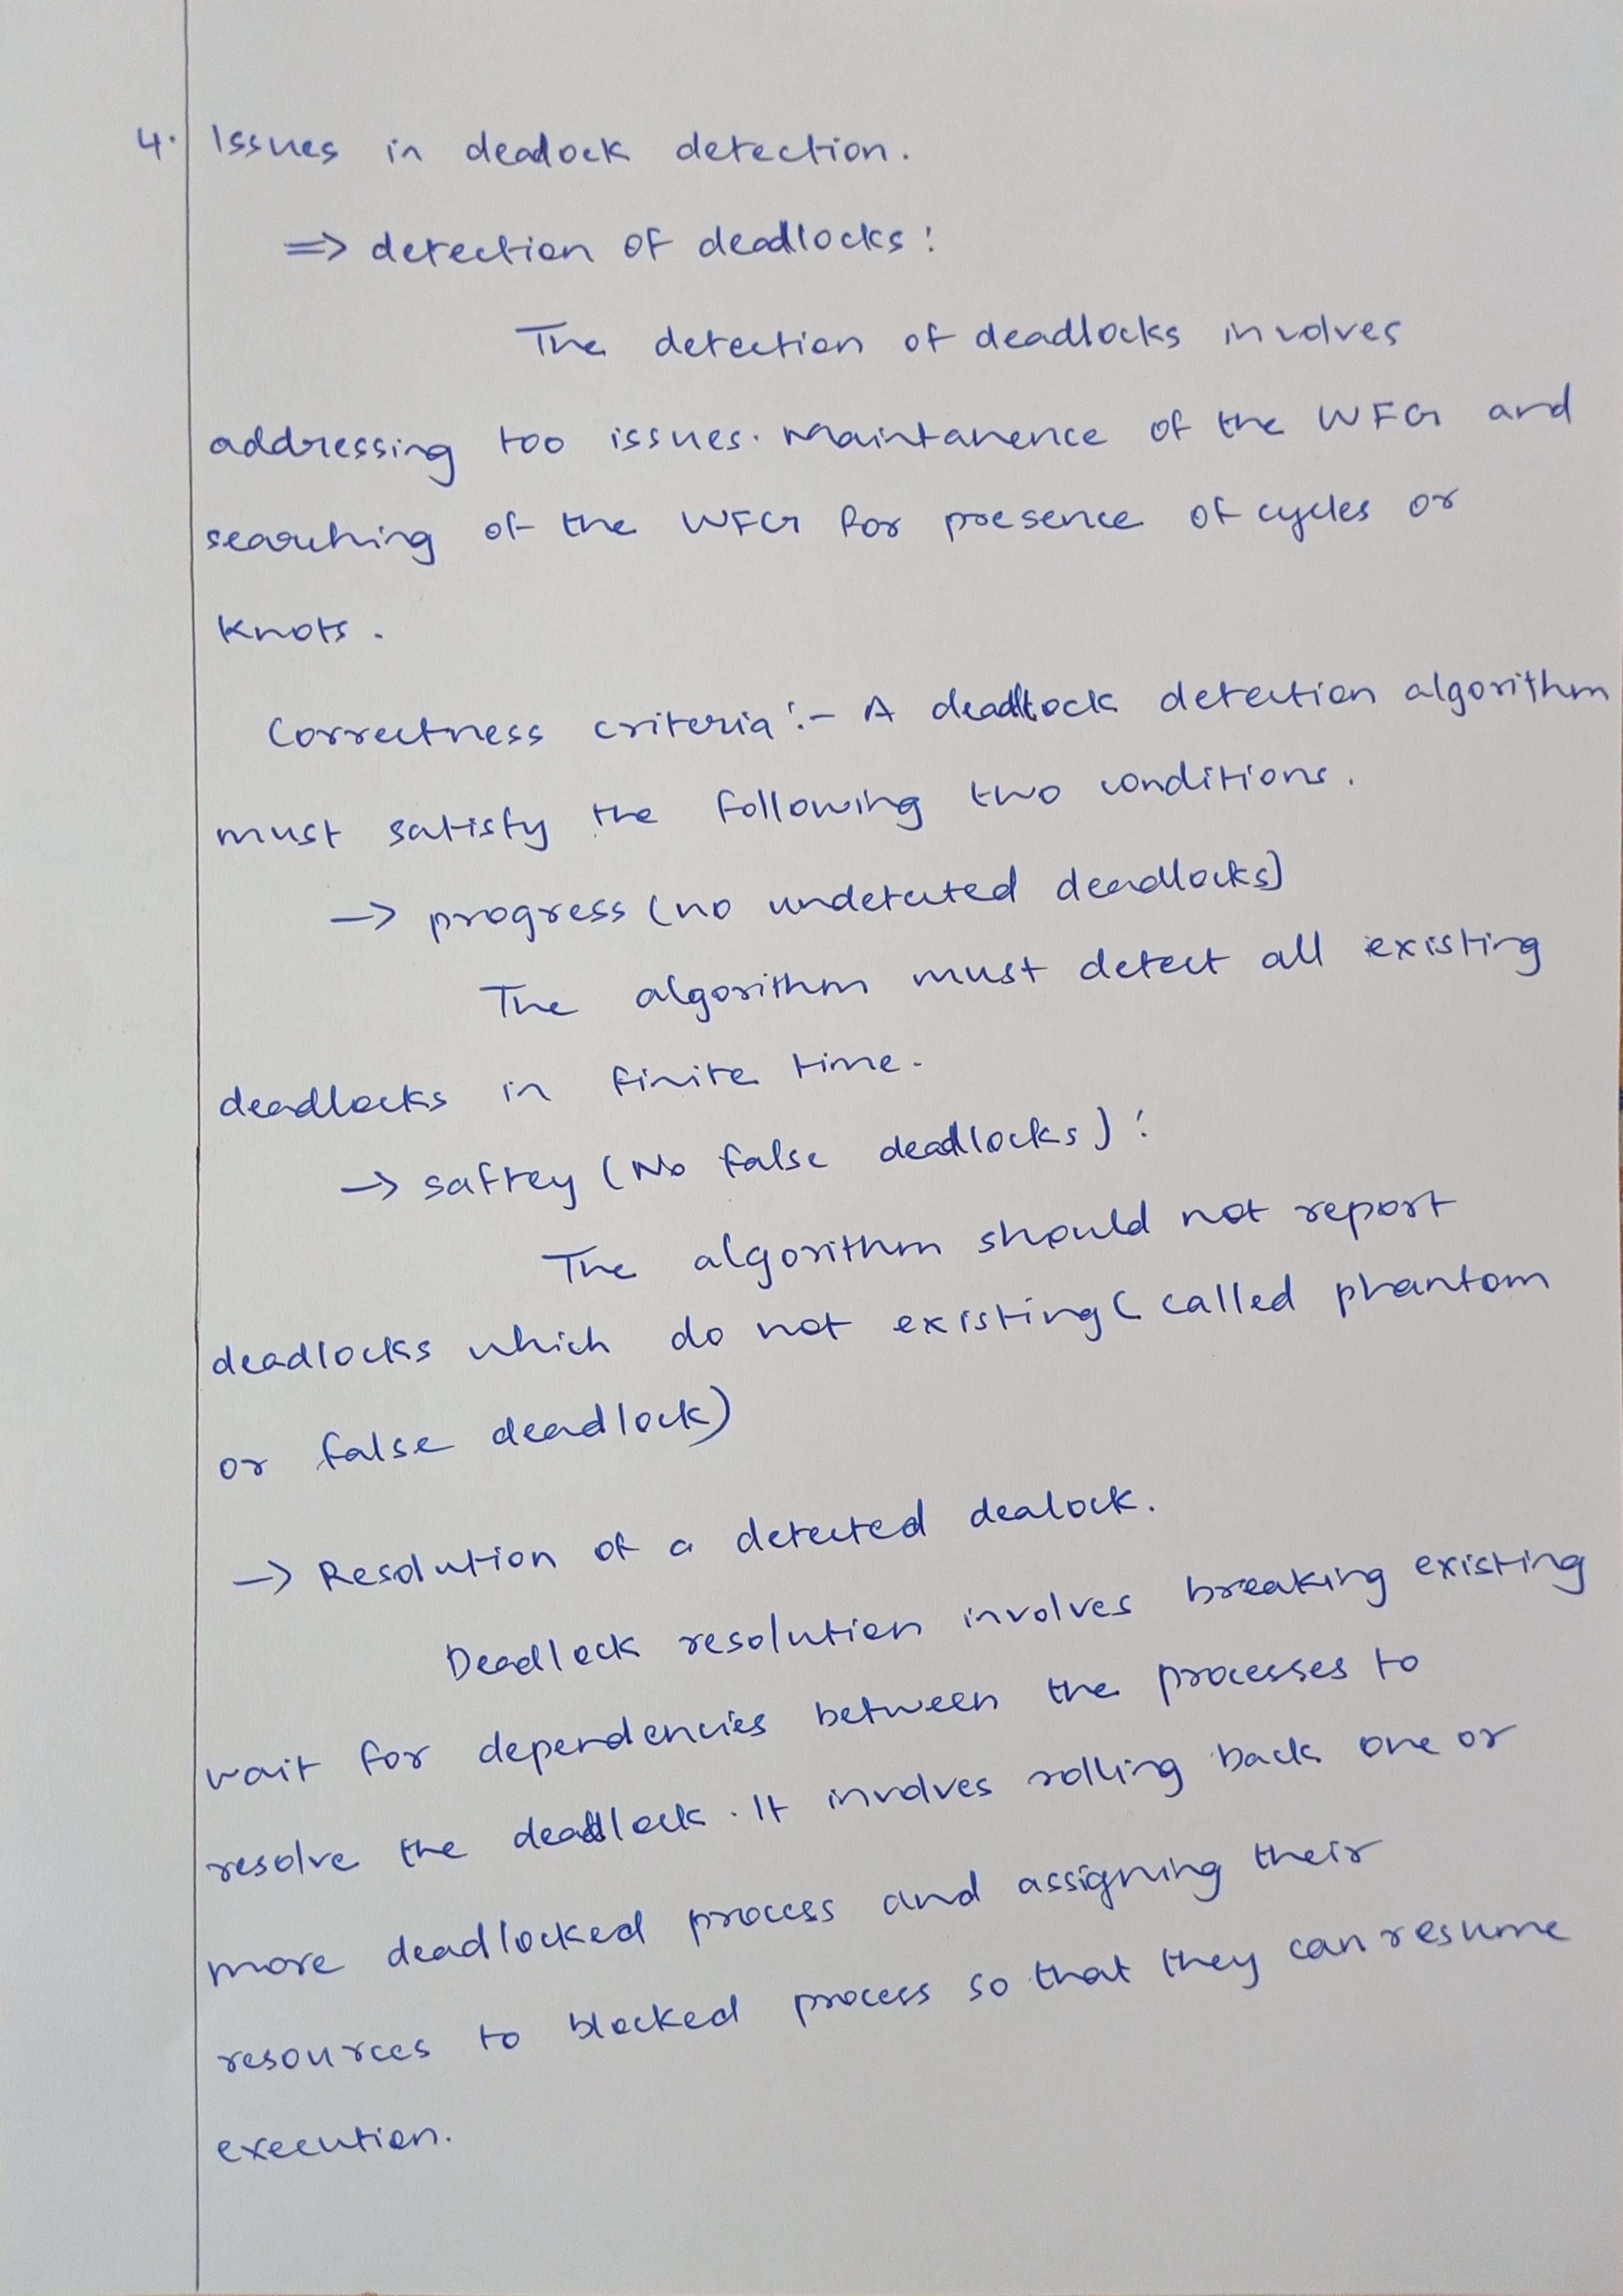 4. Issues in deadock detection.
=> detection of deadlocks :
The detection of deadlocks involves
addressing too issues. Maintanence of the WFG and
searching of the WFG for presence of cycles or
knots.
Correctness criteria :- A deadlock detection algorithm
must satisfy the following two conditions.
-> progress (no undetected deadlocks)
The algorithm must detect all existing
deadlocks in finite time.
-> saftey (No false deadlocks) :
The algorithm should not report
deadlocks which do not existing ( called phantom
or false deadlock)
-> Resolution of a detected dealock.
Deadlock resolution involves breaking existing
wait for dependencies between the processes to
resolve the deadlock. It involves rolling back one or
more deadlocked process and assigning their
resources to blocked process so that they can resume
execution.